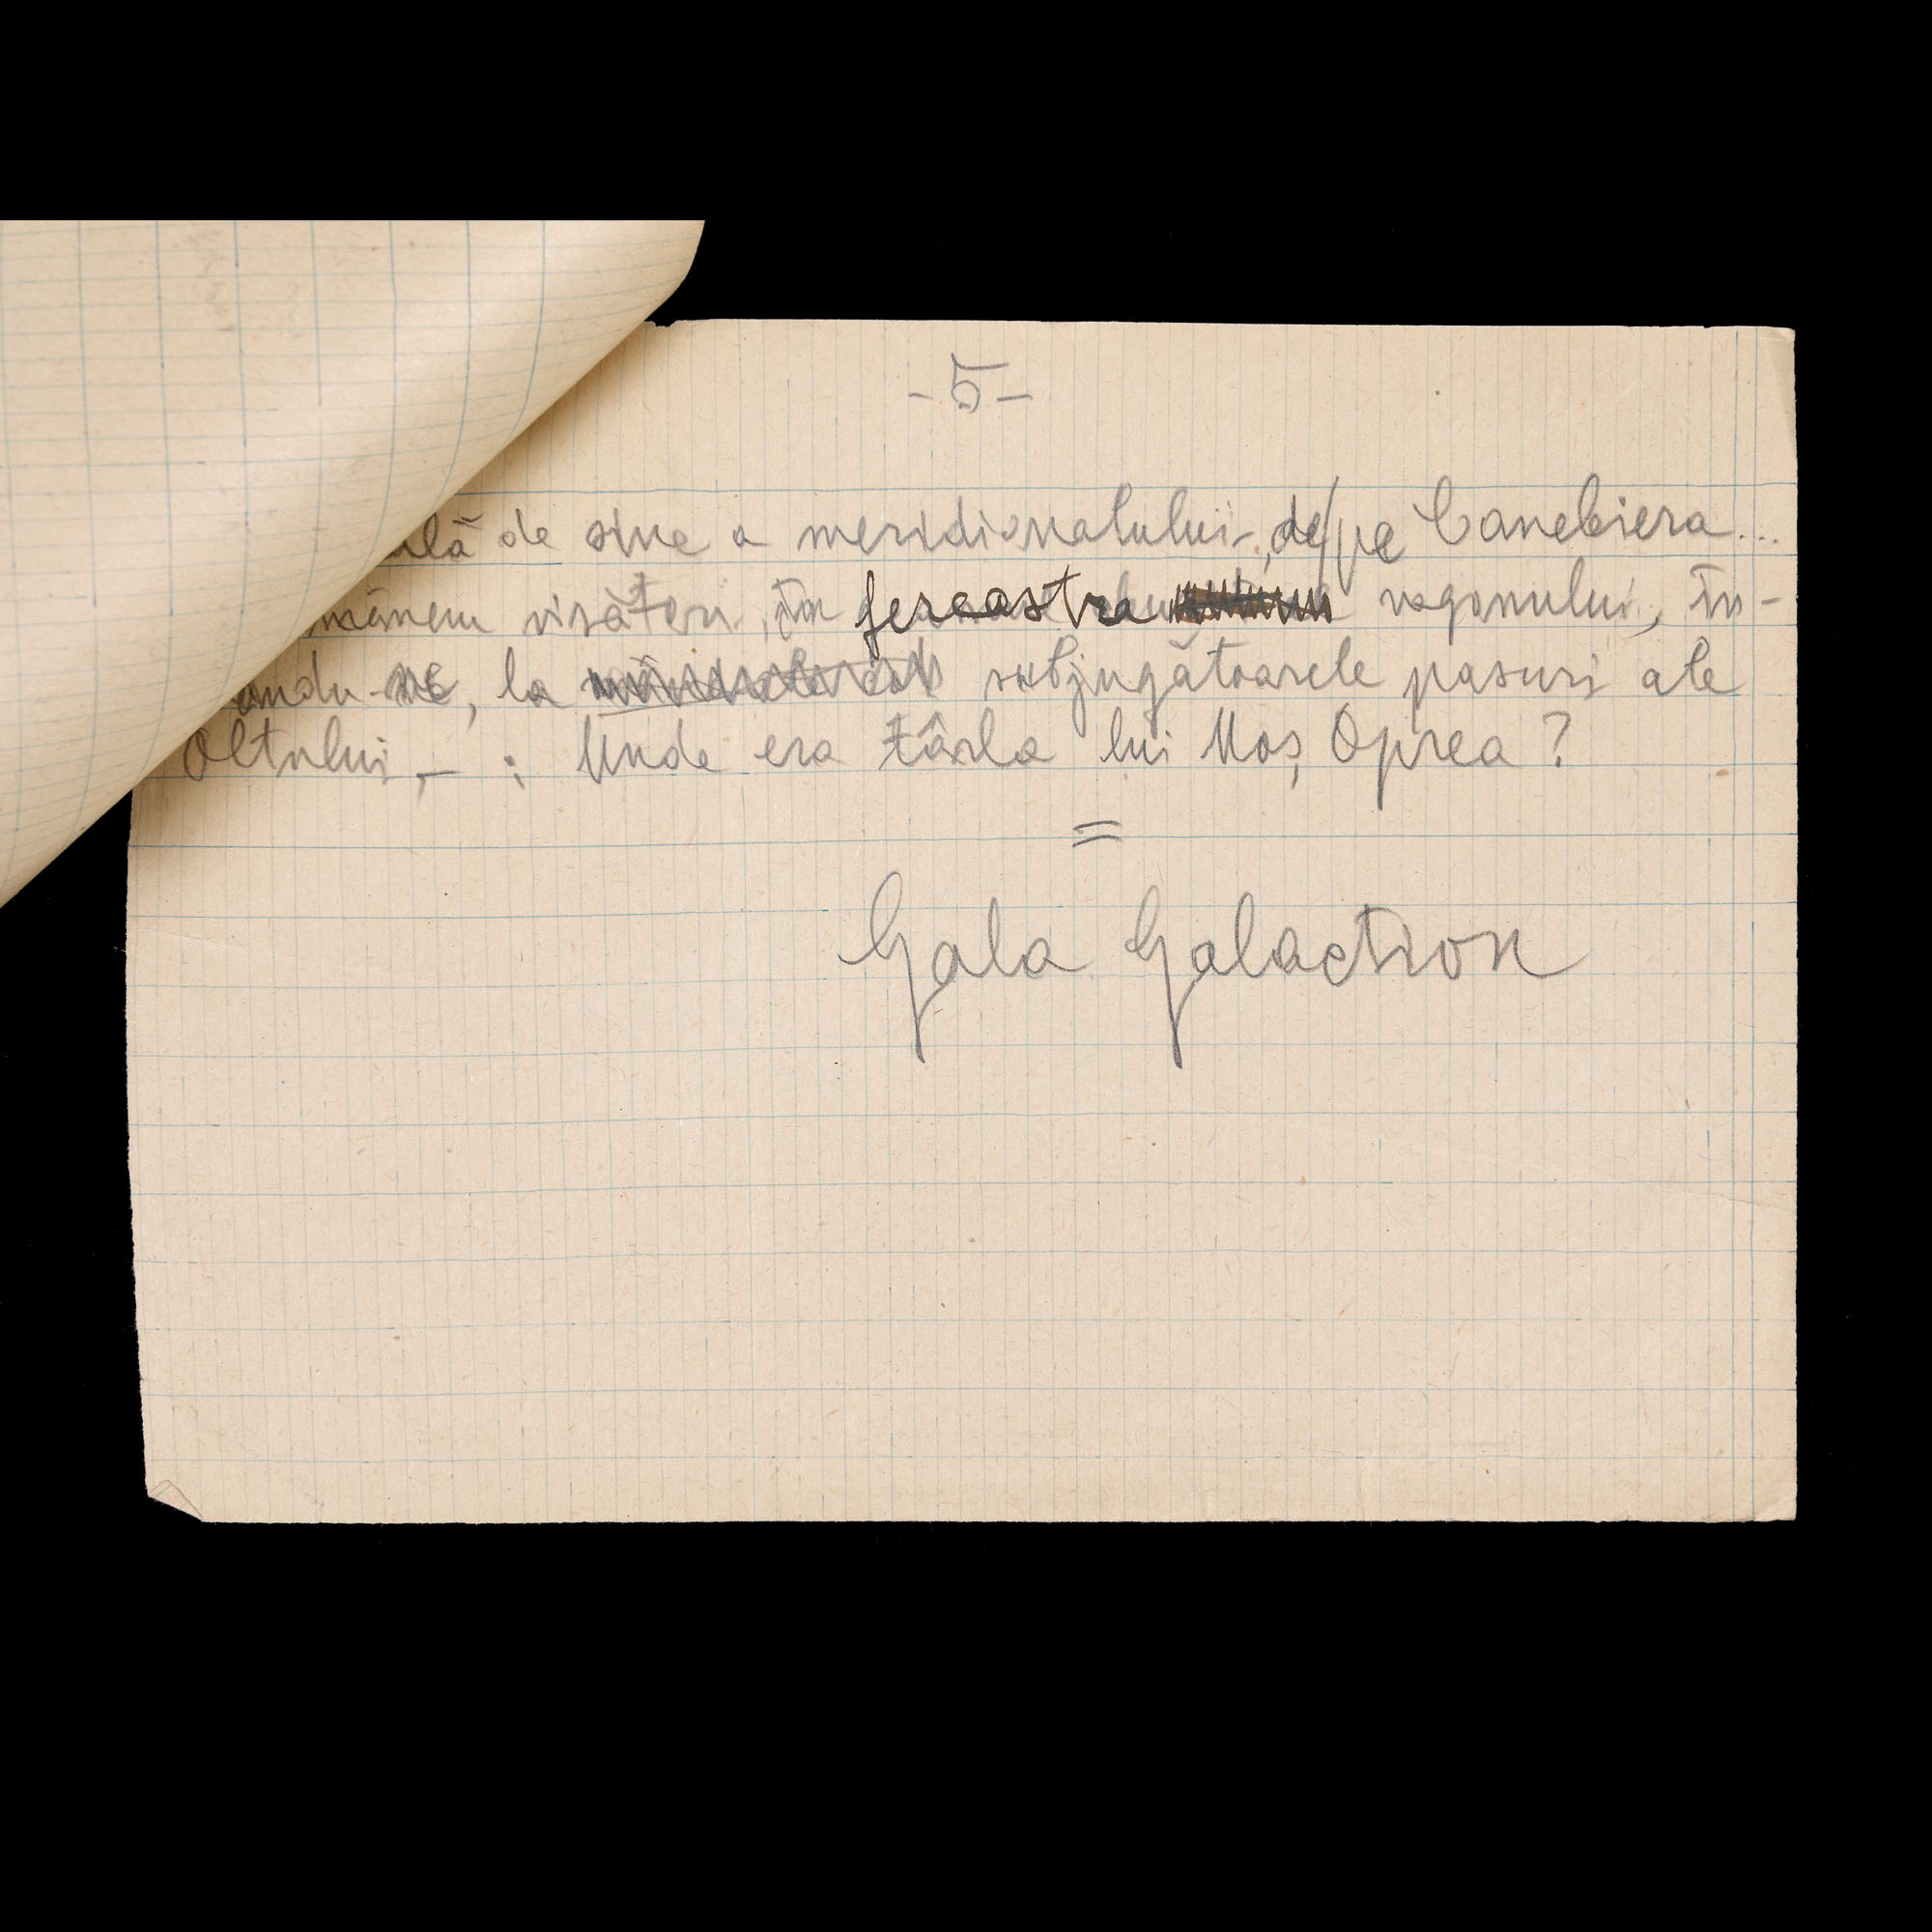 - 5 -
ulă de sine a meridionalului, de pe Canebiera...
mânem visători, în fereastra vagonului, în-
ându-ne, la subjugătoarele pasuri ale
Oltului, - : Unde era târla lui Moș Oprea ?
=
Gala Galaction